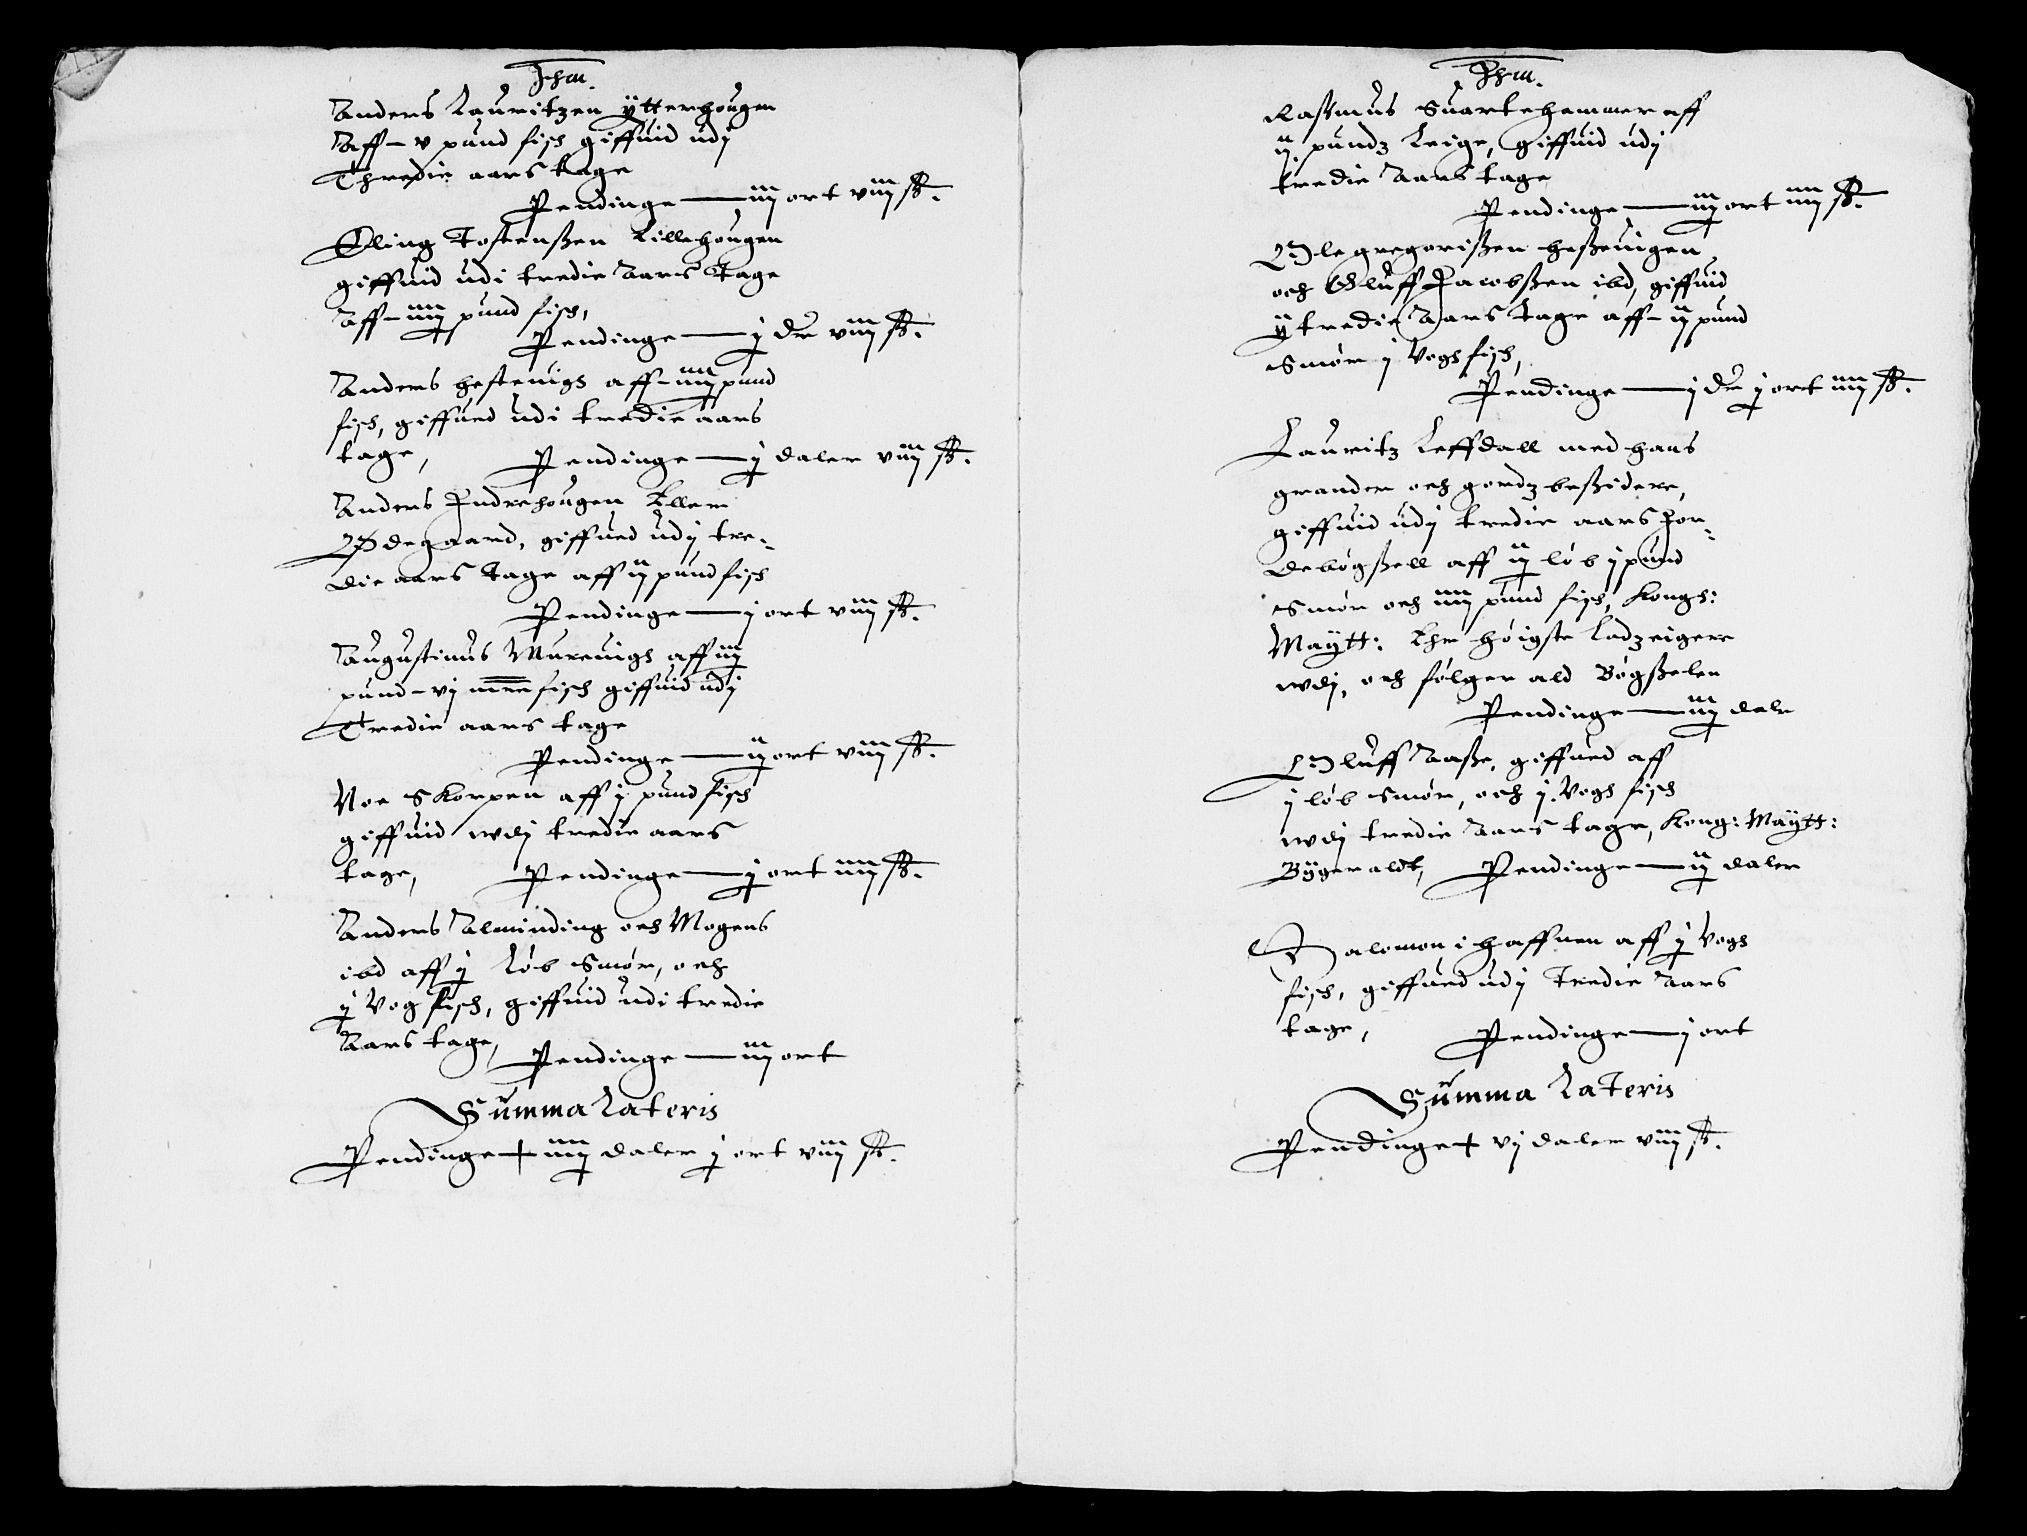 Jhm.
Anders Lauritzen ÿtterhougen
Aff - v pund fisch giffuid udj
Thredie aars tage
Pendinge — iij ort viij sk.
Eling Tostenßen Lillehougen
giffuid udi tredie Aars Tage
Aff - iiij pund fisch,
Pendinge — j dr viij sk.
Anders hestenigs aff - iiij pund
fisch, giffued udi tredie aars
tage, Pendinge — j daler viij sk.
Anders Indrehougen Eller
Ødegaard, giffued udj tre-
die aars tage aff ij pund fisch
Pendinge — j ort viij sk.
Augustinus Murenigs aff iij
pund - vj mrc fisch giffuid udj
Tredie aars tage
Pendinge — ij ort viij sk.
Noe Skorpen aff j pund fisch
giffuid wdj tredie aars
tage, Pendinge — j ort iiij sk.
Anders Alminding och Mogens
ibd aff j Løb Smør, och
j Vog fisch, giffuid udi tredie
Aars tage,
Pendinge — iij ort
Summa Lateris
Pendinge + iiij daler j ort viij sk.
Jhm.
Raßmus Suartehammer aff
ij pundz Leige, giffuid udj
tredie Aars tage
Pendinge — iij ort iiij sk.
Ole gregorißen heßeuigen
och Oluff Jacobßen ibd, giffuid
ÿ tredie Aars tage aff - ij pund
Smør j Vogh fisch,
Pendinge — j dr j ort iiij sk.
Lauritz Leffdall med hans
grander och gordz beßidere,
giffuid udj tredie aars Jor-
debøgßell aff ij løb j pund
Smør och iiij pund fisch, Kongh:
Maÿtt: Ehr høigste Ladzeigere
wdj, och følger ald Bøgßelen
Pendinge — iij dale
Oluff Aaße, giffued aff
j løb Smør, och j Vogh fisch
wdj tredie Aars tage, Kong: Maÿtt:
Bÿger aldt, Pendinge — ij daler
Salomon i haffnen aff j Vogh
fisch, giffued udj Tredie Aars
tage, Pendinge — j ort
Summa Lateris
Pendinge + vj daler viij sk.